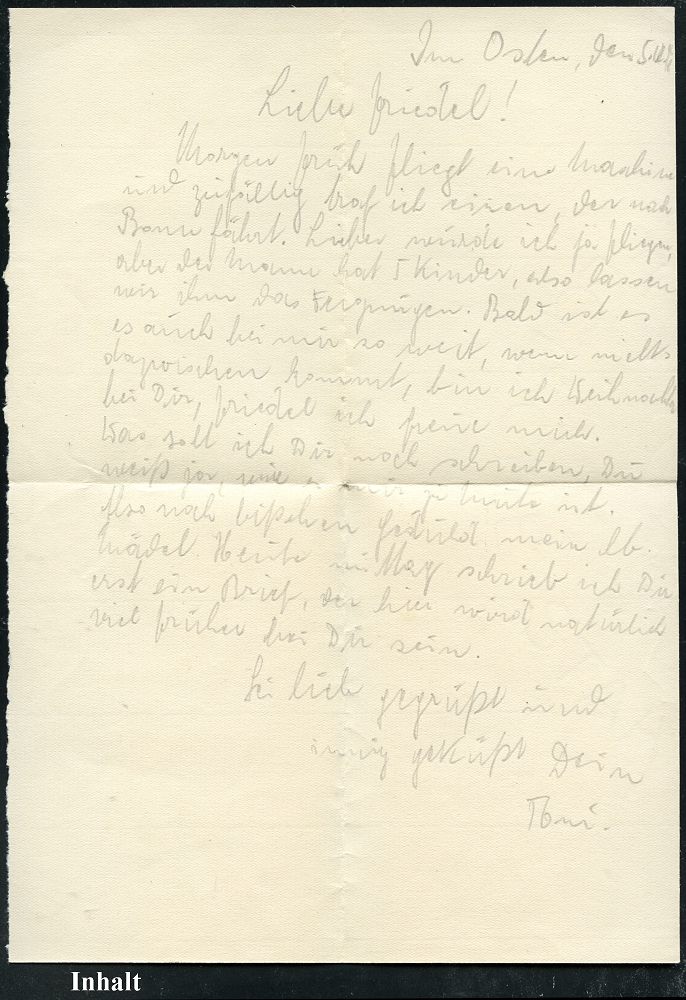 Im Osten, den 5.
Liebe Friedel!
Morgen früh fliegt eine Maschine
und zufällig traf ich einen, der nach
Bonn fährt. Lieber würde ich ja fliegen,
aber der Mann hat 5 Kinder, also lassen
wir ihm das Vergnügen. Bald ist es
es auch bei mir so weit, wenn nichts
dazwischen kommt, bin ich Weihnachten
bei Dir, Friedel ich freue mich.
Was soll ich Dir noch schreiben, Du
weißt ja, wie es mir zu Mute ist.
Also noch bißchen Geduld mein lb.
Mädel. Heute mittag schrieb ich Dir
erst ein Brief, der hier wird natürlich
viel früher bei Dir sein.
Sei lieb gegrüßt und
innig geküßt Dein
Toni.
Inhalt